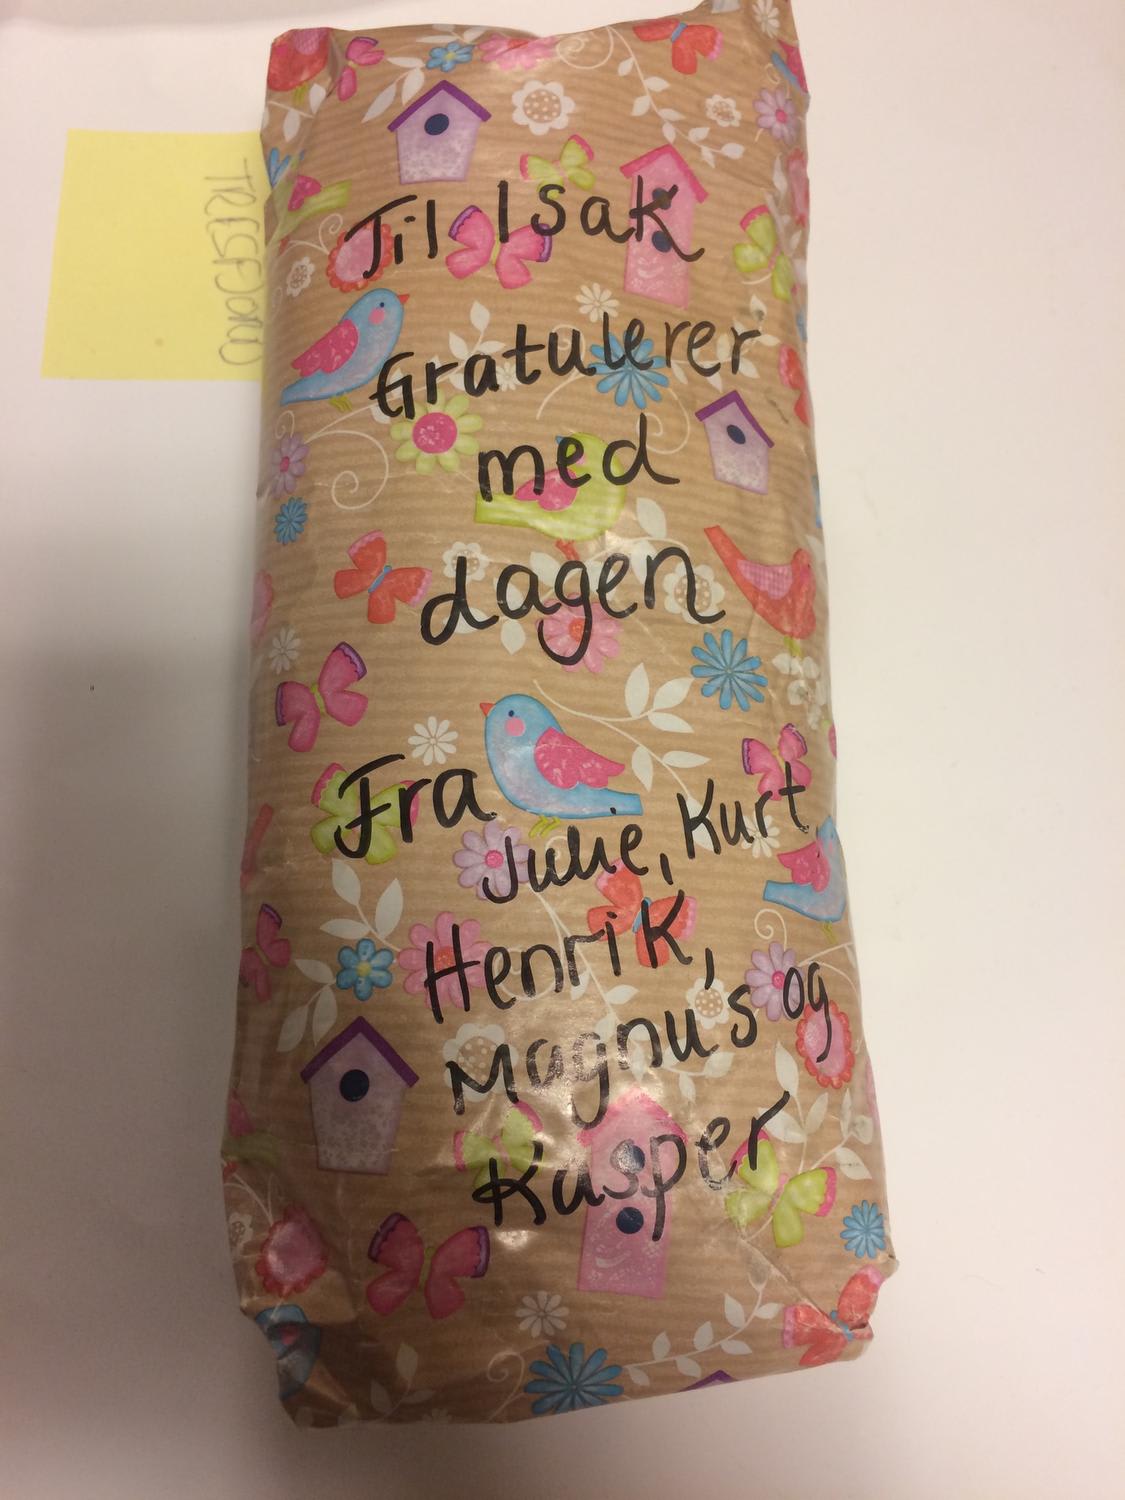 Til Isak
Gratulerer
med
dagen
Fra
Julie, Kurt
Henrik,
Magnu's og
Kasper
TRESFJORD